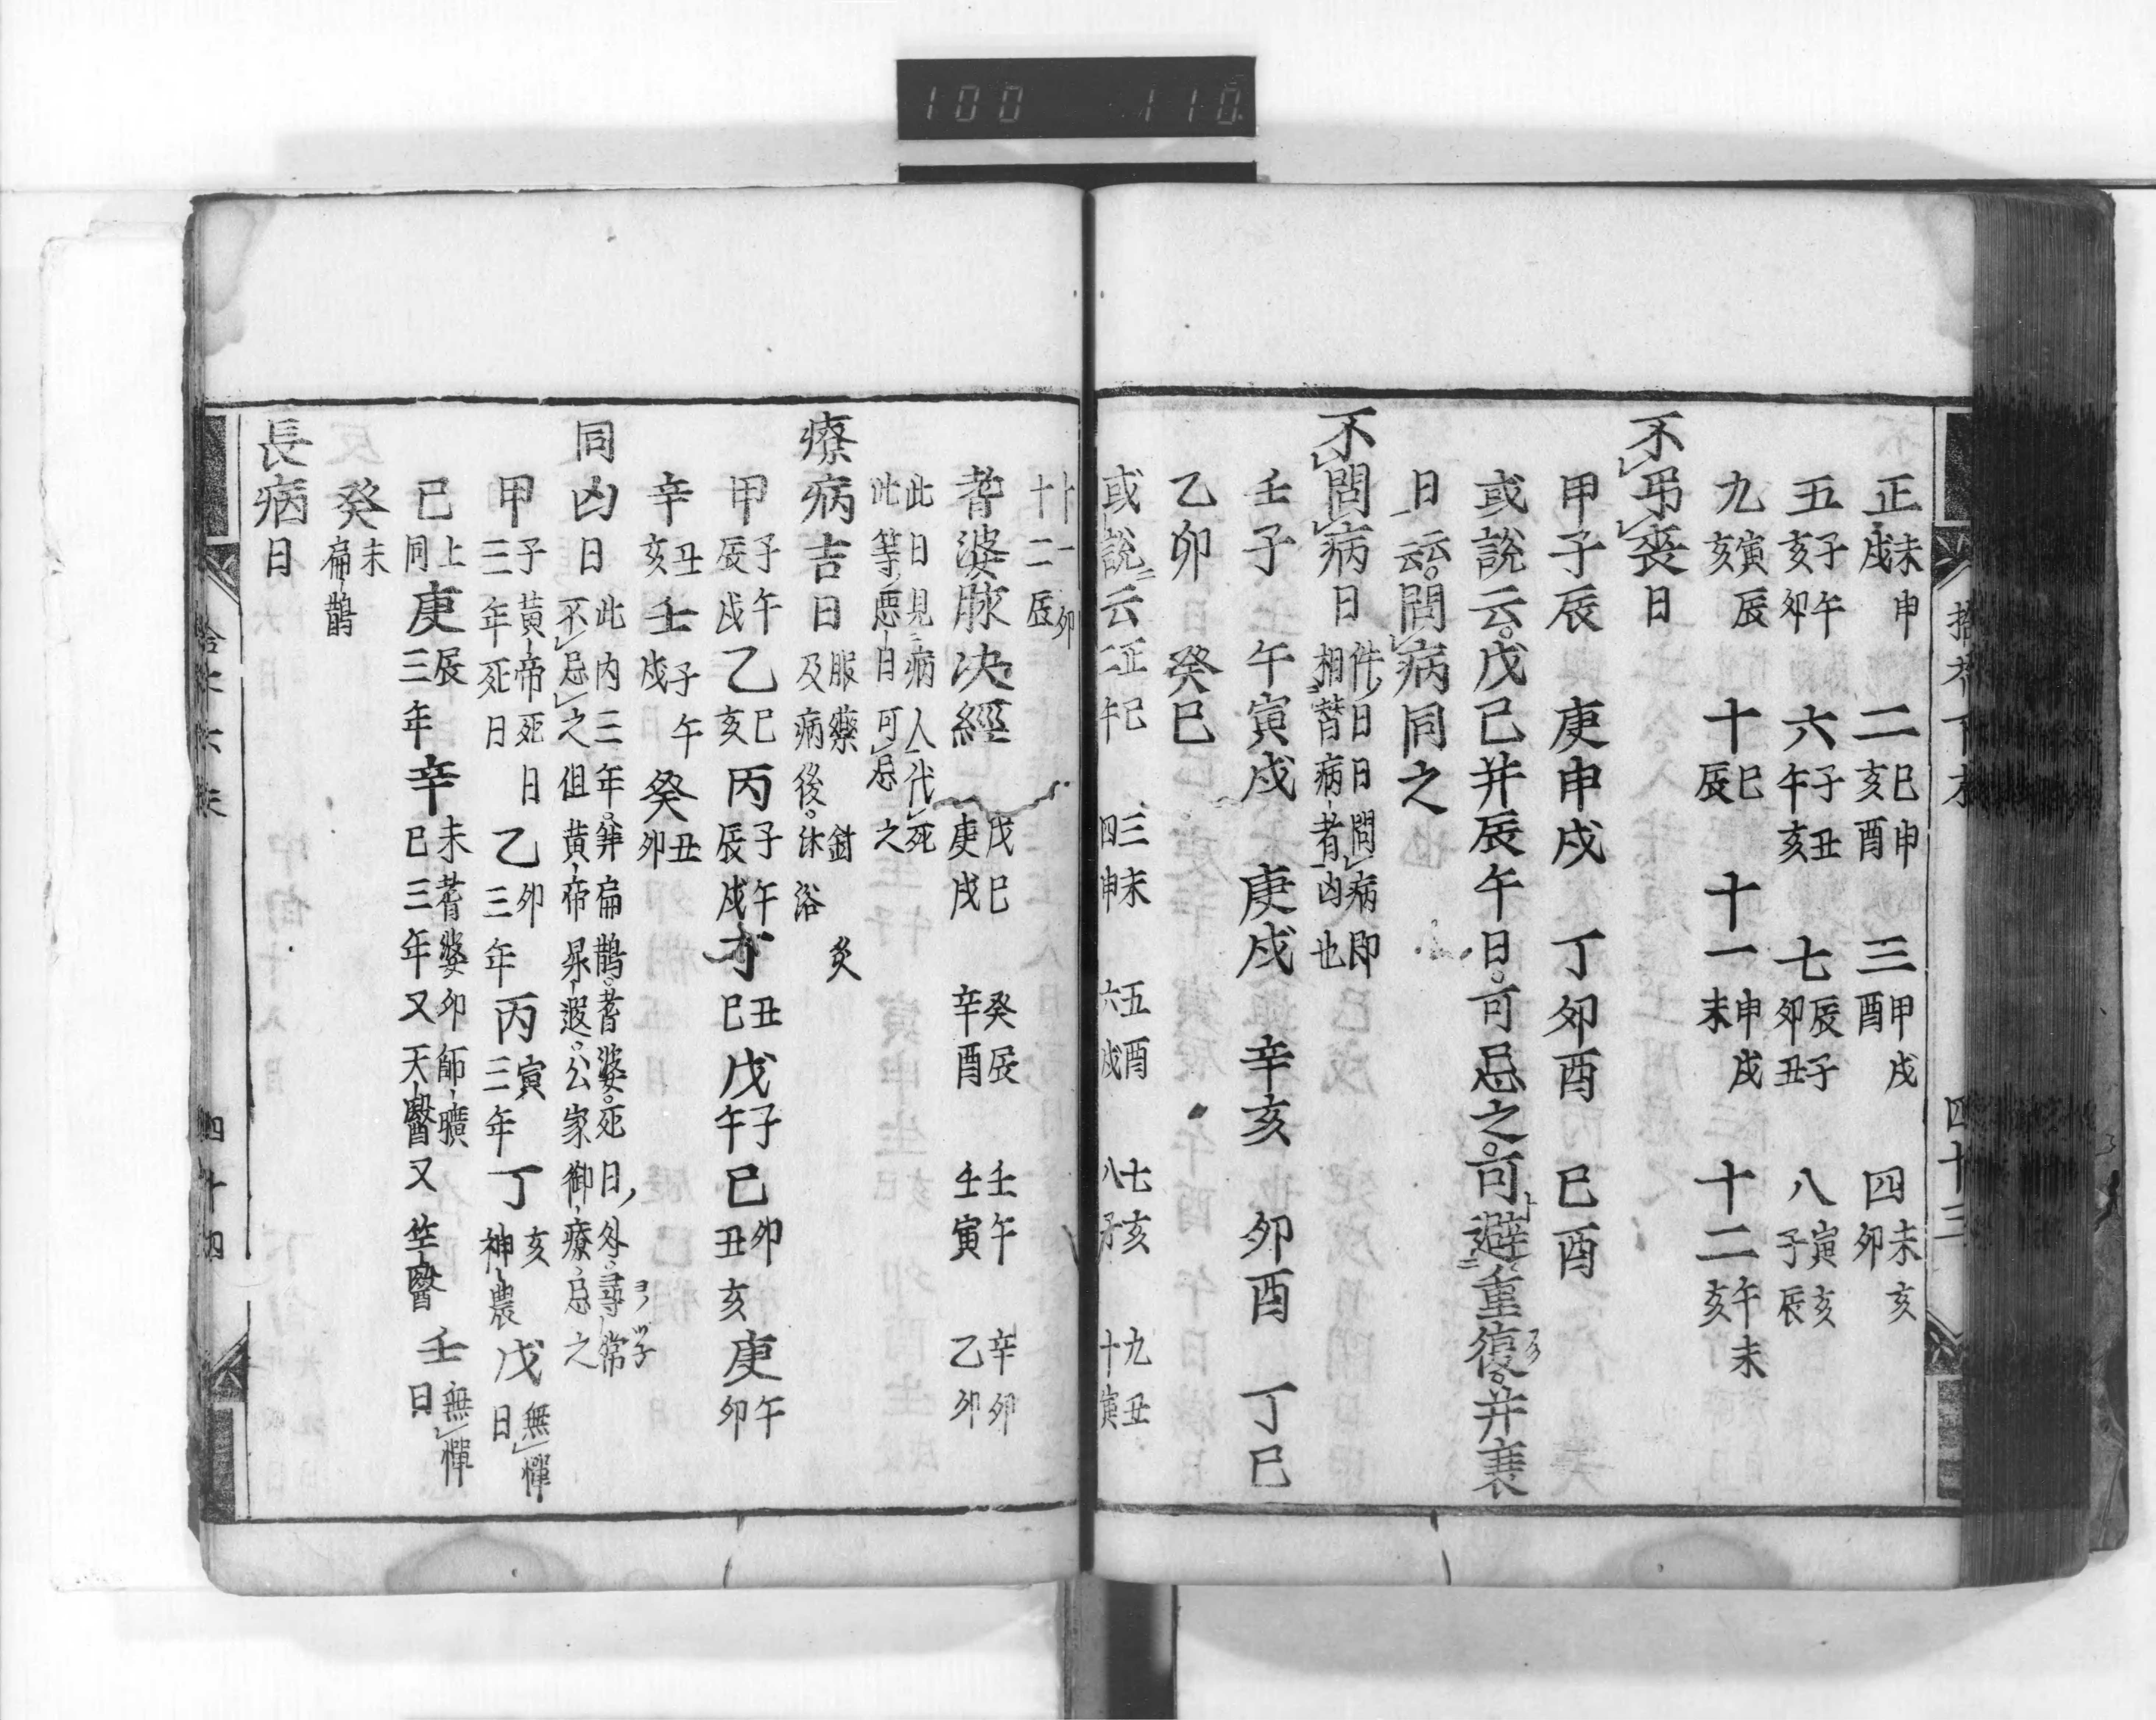 100 110
正未申戌 二巳申亥酉 三甲戌酉 四未亥卯
五子午亥卯 六子丑午亥 七辰子卯丑 八寅亥子辰
九寅辰亥 十巳辰 十一申戌未 十二午未亥
不弔喪日
甲子辰 庚申戌 丁卯酉 巳酉
或說云戊己并辰午日可忌之可避重復并衰
日云云問病同之
不問病日 件日日問病即相替病者凶也
壬子 午寅戌 庚戌 辛亥 卯酉 丁巳
乙卯 癸巳
或說云 正巳二午 三未四申 五酉六戌 七亥八子 九丑十寅
十一卯十二辰
耆婆脉决經 戊巳庚戌 癸辰辛酉 壬午壬寅 辛卯乙卯
此日見病人代死
此等惡日可忌之
療病吉日 服藥針灸及病後沐浴
甲子午辰戌 乙巳亥 丙子午辰戌 丁丑巳 戊子午 巳卯丑亥 庚午卯
辛丑亥 壬子午戌 癸丑卯
同凶日 此内三年并扁鵲耆婆死日外尋常
不忌之但黄帝昇遐公家御療忌之
甲子黄帝死日三年死日 乙卯三年 丙寅三年 丁亥神農 戊無憚日
巳上同 庚辰三年 辛未耆婆卯師曠巳三年又天醫又竺醫 壬無憚日
癸未扁鵲
長病日
四十三
四十四